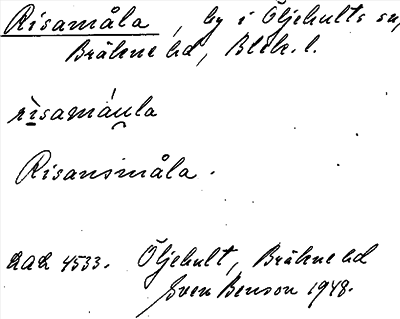 Risamåla, by i Öljehults sn,
Bräkne hd, Blek. l.
rìsamá͜ula
Risansmåla.
4533. Öljehult, Bräkne hd
Sven Benson 1948.